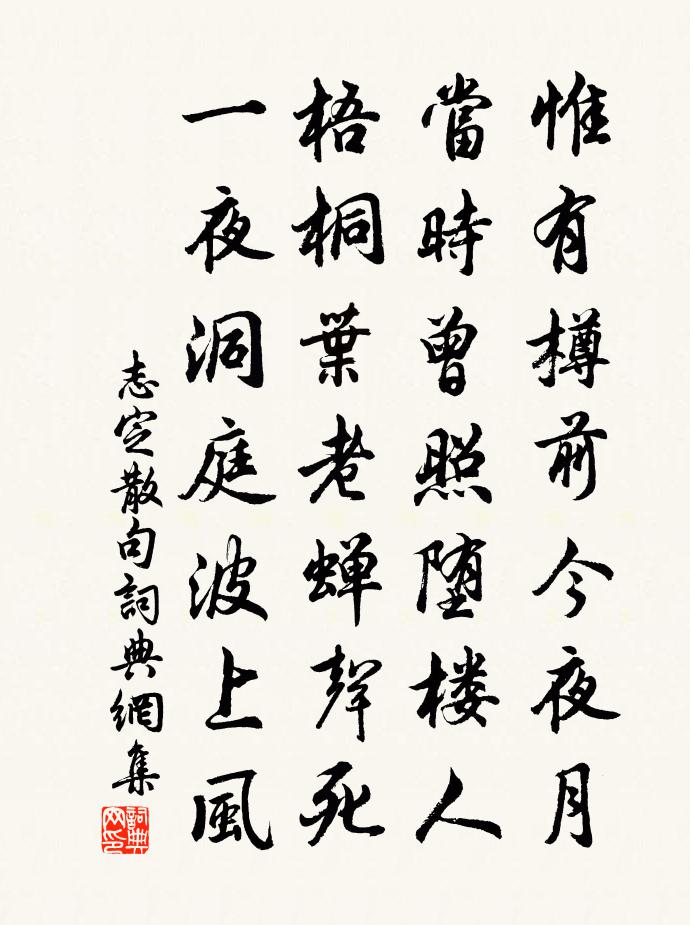 惟有樽前今夜月
當時曾照堕楼人
梧桐葉老蝉聲死
一夜洞庭波上風
志定散句詞典網集
詞典网印